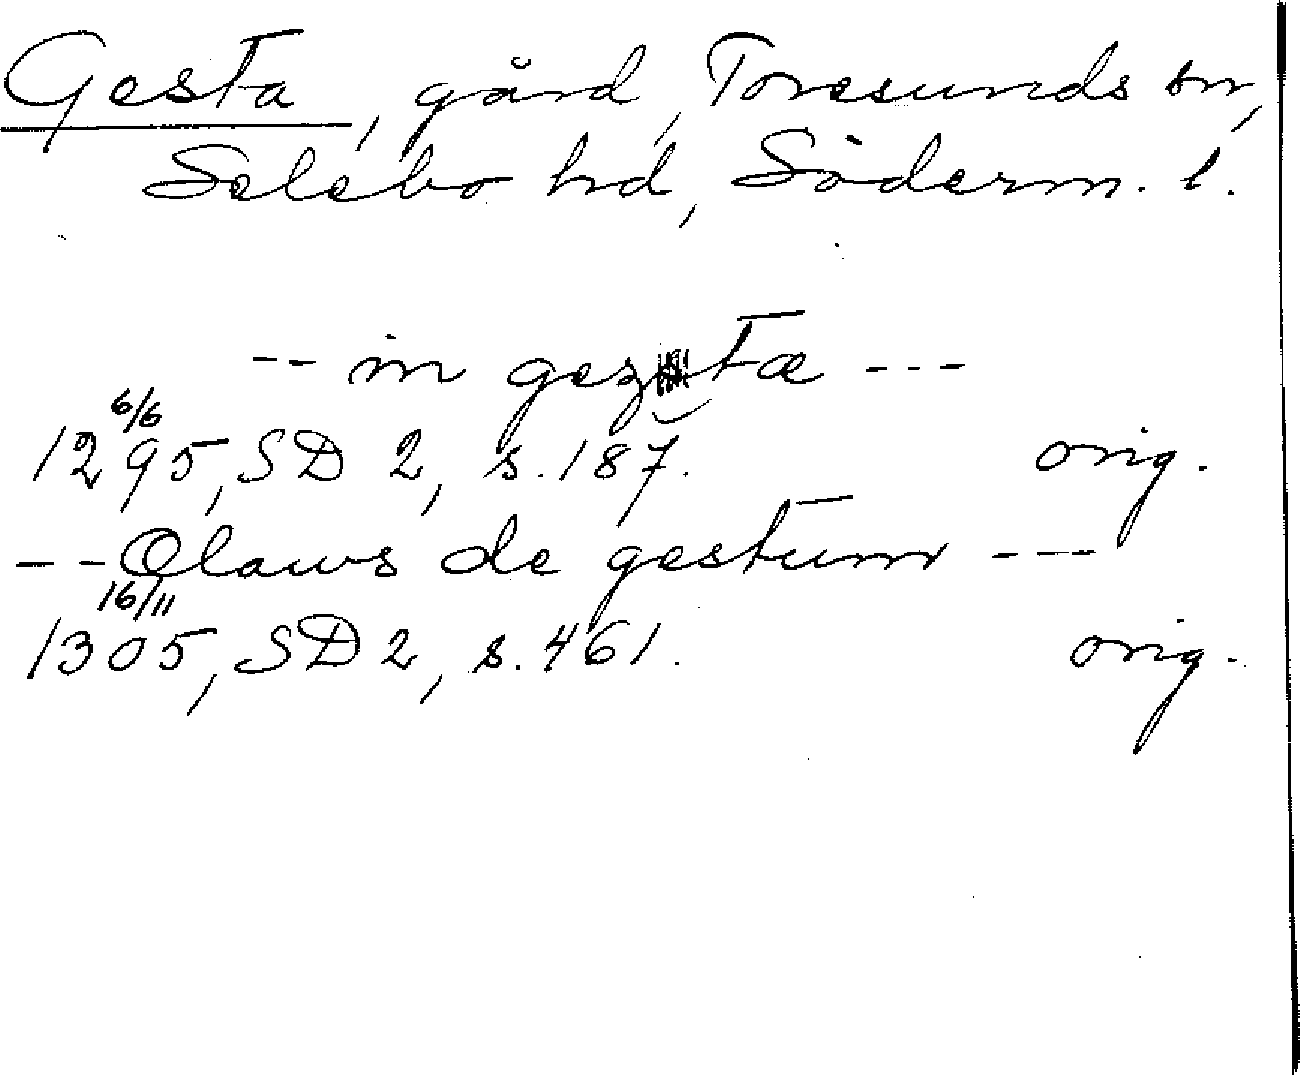 Gesta, gård, Toresunds sn,
Selebo hd, Söderm. l.
-- in geztæ ---
6/6
1295, SD 2, s. 187. orig.
-- Olauus de gestum ---
16/11
1305, SD 2, s. 461. orig.